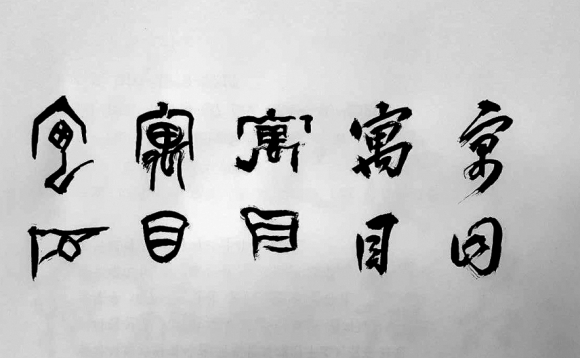 寓目
寓目
寓目
寓目
寓目